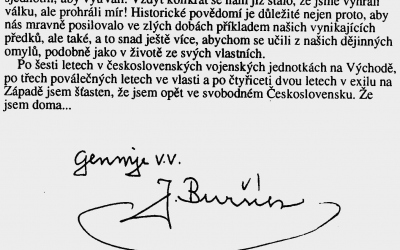 válku, ale prohráli mír! Historické povědomí je důležité nejen proto, aby
nás mravně posilovalo ve zlých dobách příkladem našich vynikajících
předků, ale také, a to snad ještě více, abychom se učili z našich dějinných
omylů, podobně jako v životě ze svých vlastních.
Po šesti letech v československých vojenských jednotkách na Východě,
po třech poválečných letech ve vlasti a po čtyřiceti dvou letech v exilu na
Západě jsem šťasten, že jsem opět ve svobodném Československu. Že
jsem doma...
v.v.
J.